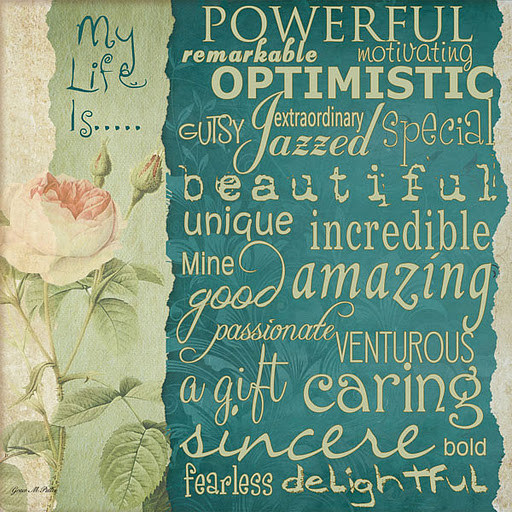 My
Life
Is.....
POWERFUL
remarkable motivating
OPTIMISTIC
GUTSY extraordinary special
Jazzed
beautiful
unique incredible
Mine
good amazing
passionate VENTUROUS
a gift caring
sincere bold
fearless delightful